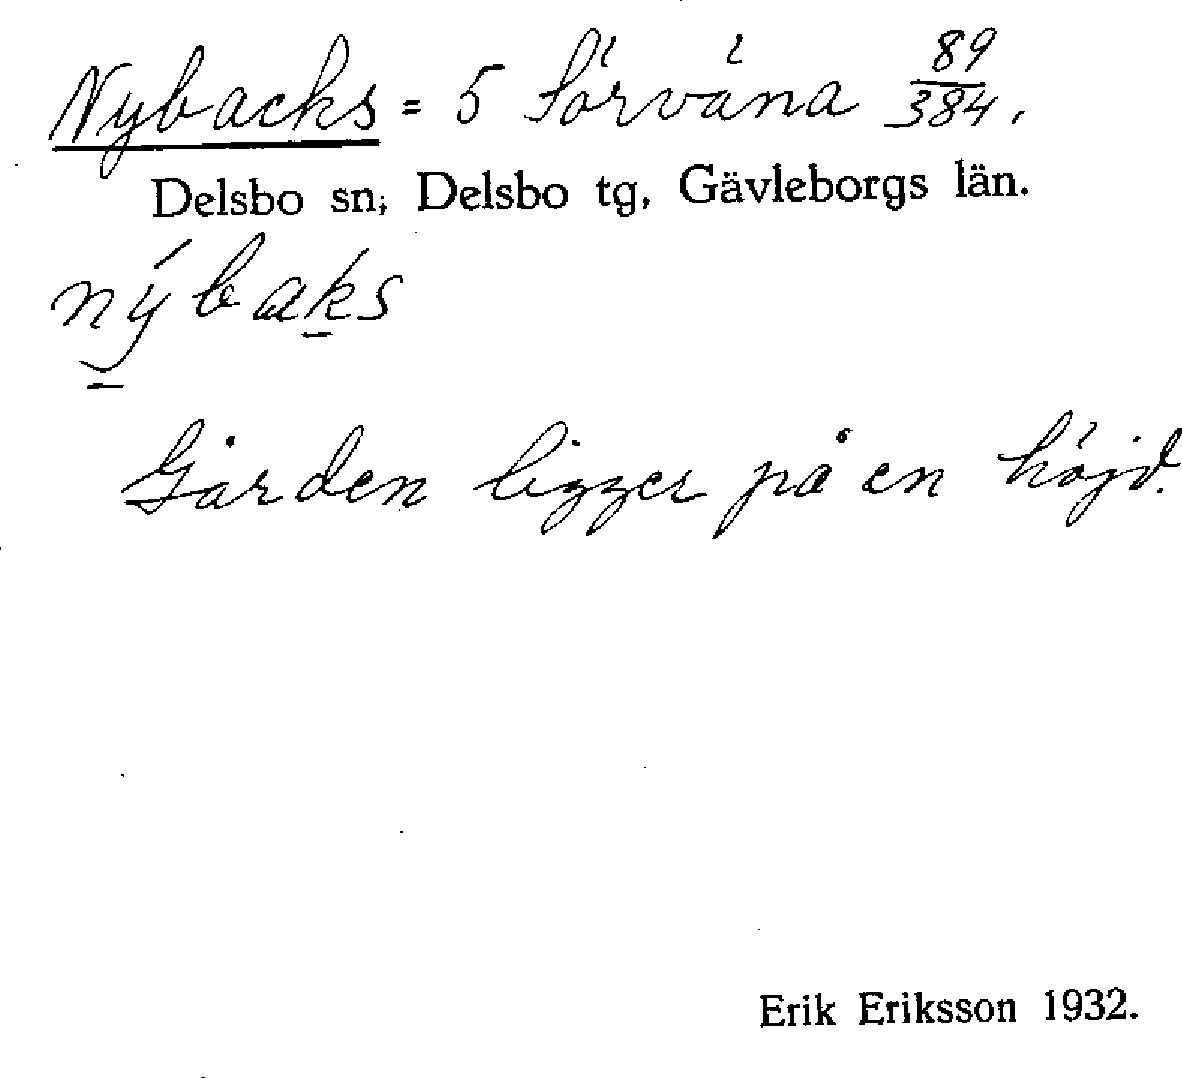 Nybacks = 5 Sörväna 89/384.
Delsbo sn, Delsbo tg, Gävleborgs län.
nýbaks
Gården ligger på en höjd.
Erik Eriksson 1932.